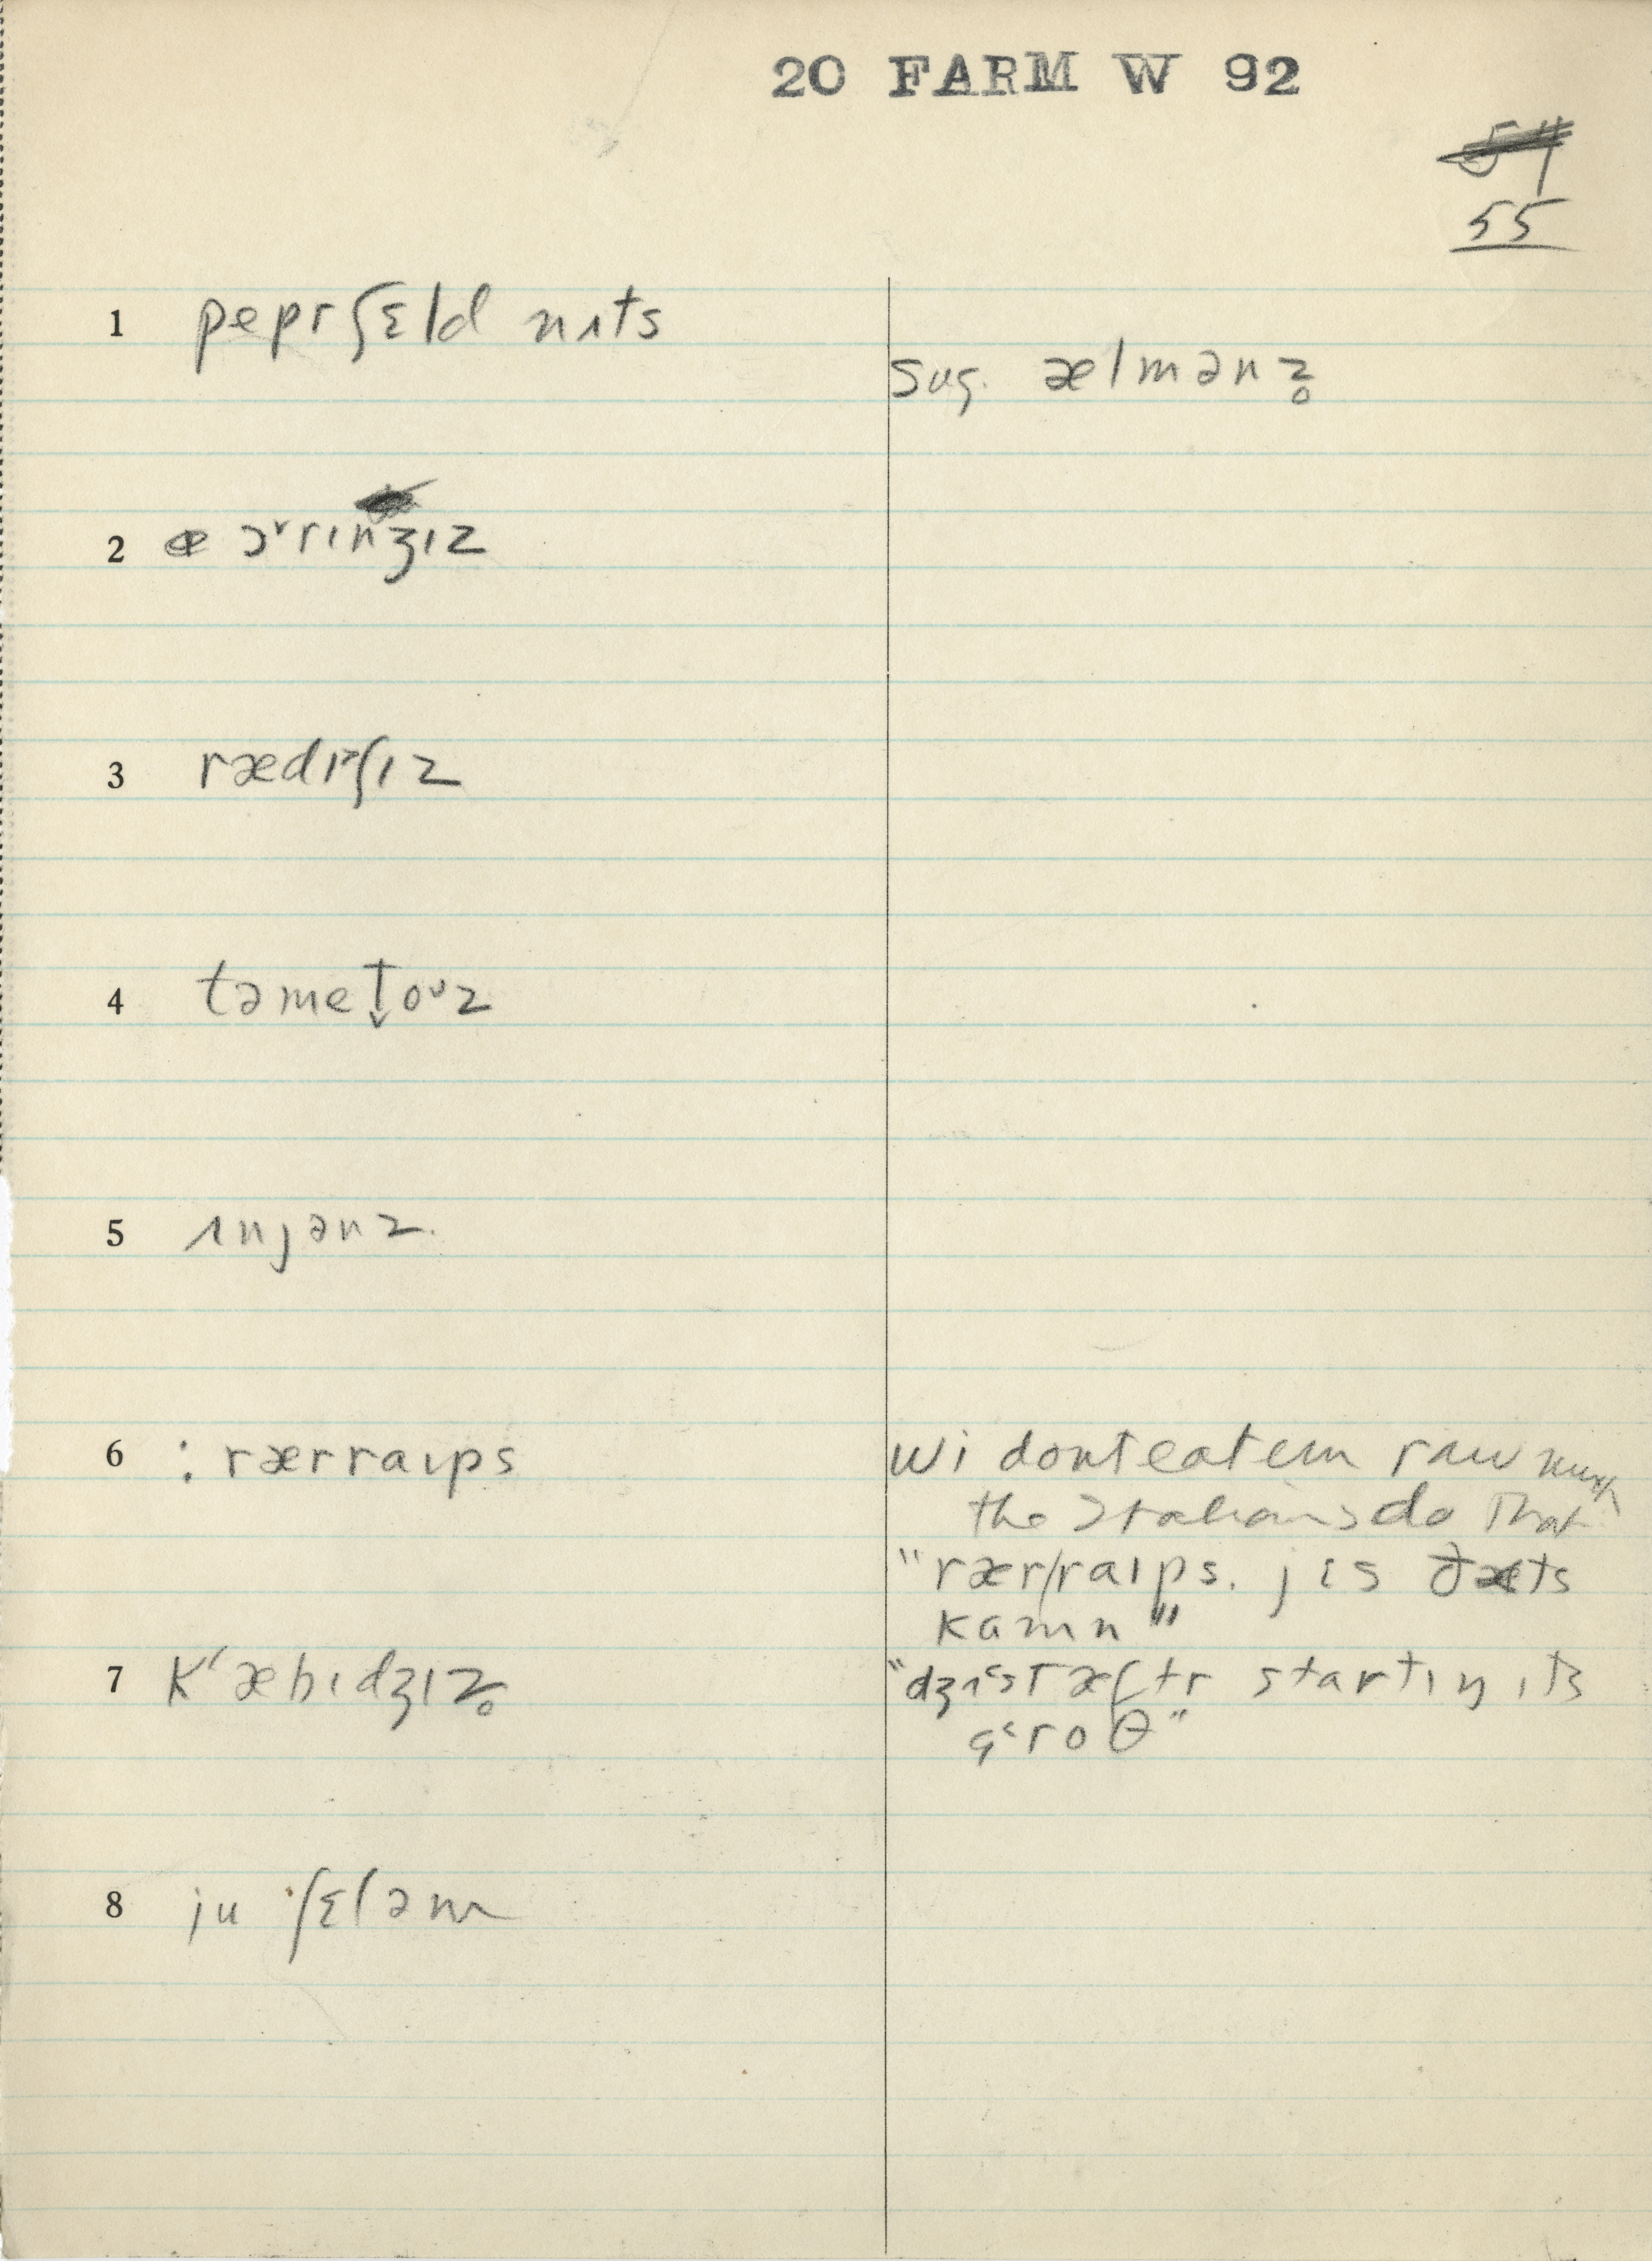 20 FARM W 92
55
1 pepr ʃɛld nʌts
sug. ælmənz̥
2 ɔˠrɪnʒɪz
3 rædɪʃɪz
4 təmet̬oᶷz
5 ʌnjənz
6 : rærraɪps
wi dont eat em raw much
the Italians do that
"rærraɪps. jis ðæts
kamn"
7 kʻæbɪdʒɪz̥
"dʒʌst æftr startɪŋ ɪts
groθ"
8 ju ʃɛl əm